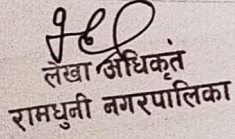 लेखा अधिकृत
रामधुनी नगरपालिका